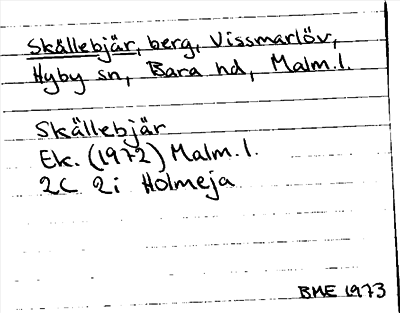 Skällebjär, berg, Vissmarlöv,
Hyby sn, Bara hd, Malm.l.
Skällebjär
Ek. (1972) Malm.l.
2C 2i Holmeja
BME 1973